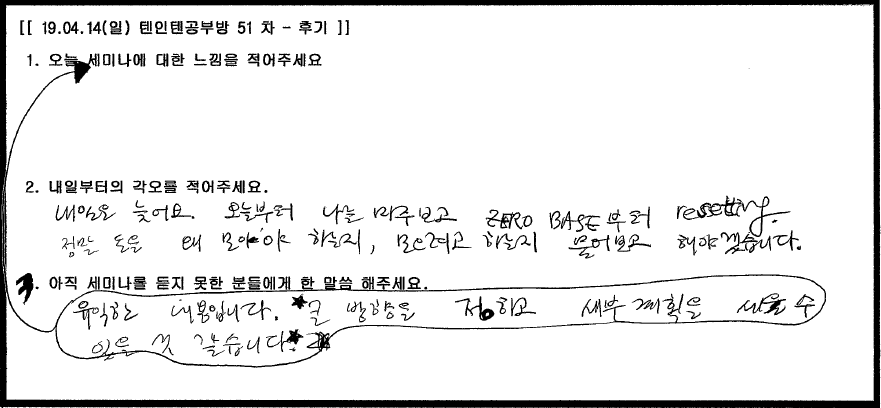 [[ 19.04.14(일) 텐인텐공부방 51 차 - 후기 ]]
1. 오늘 세미나에 대한 느낌을 적어주세요
2. 내일부터의 각오를 적어주세요.
내일은 늦어요. 오늘부터 나를 마주보고 ZERO BASE부터 resetting.
정말 돈을 왜 모아야 하는지, 모으려고 하는지 물어보고 해야겠습니다.
3. 아직 세미나를 듣지 못한 분들에게 한 말씀 해주세요.
유익한 내용입니다. ★큰 방향을 정하고 세부계획을 세울 수
있을 것 같습니다.★